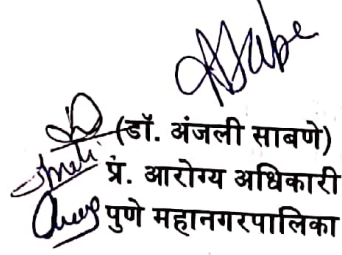 (डॉ. अंजली साबणे)
प्रं. आरोग्य अधिकारी
पुणे महानगरपालिका